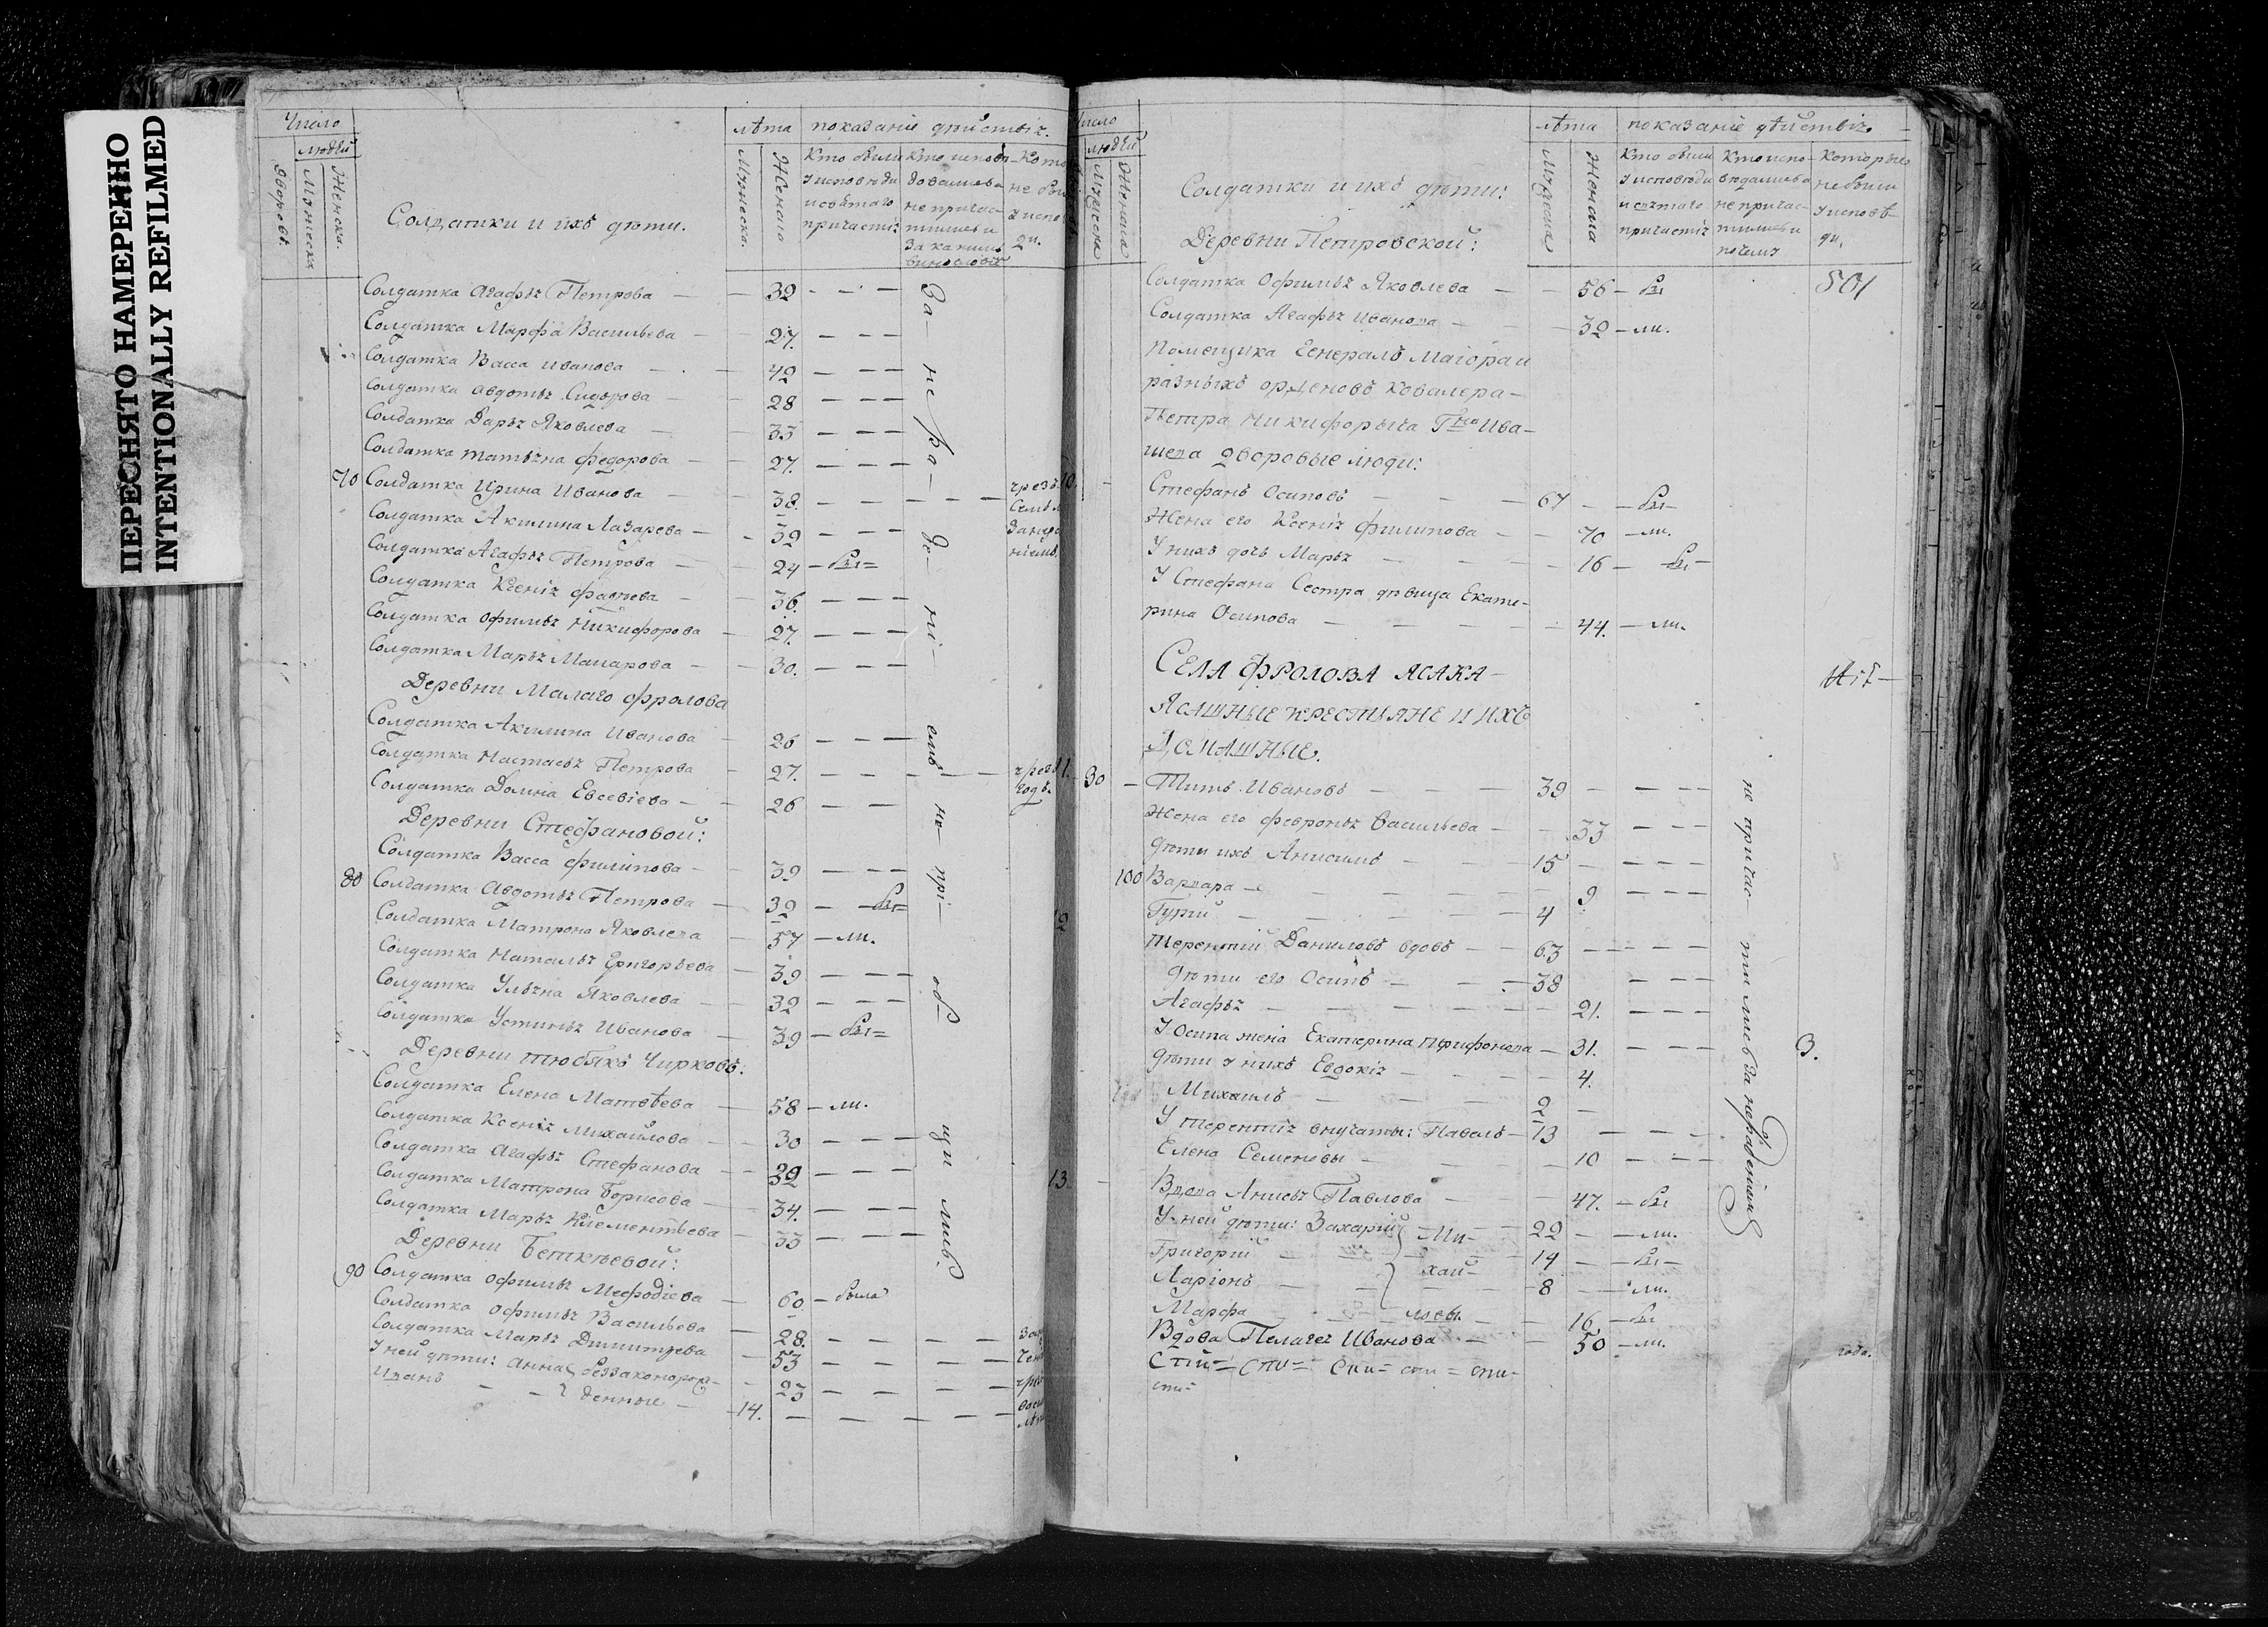 ПЕРЕСНЯТО НАМЕРЕННО
INTENTIONALLY REFILMED
Число
людей
дворовъ.
Мужеска
Женска.
Солдатки и ихъ дѣти.
лѣта
Мужеска.
Женска
показаніе дѣйствія.
Кто были у исповѣди и святаго причастія
Кто исповѣдовались а не причастились и за какимъ винословіемъ
Солдатка Агафья Петрова — 32 — — —
Солдатка Марфа Васильева — 27. — — —
Солдатка Васса Иванова — 42 — — —
Солдатка Авдотья Сидорова — 28 — — —
Солдатка Дарья Яковлева — 33 — — —
Солдатка Татьяна Федорова — 27. — — —
70 Солдатка Ирина Иванова — 38. — — —
Солдатка Акилина Лазарева — 39 — — —
Солдатка Агафья Петрова — 24 — бы=
Солдатка Ксенія Фадѣева — 36. — — —
Солдатка Офимья Никифорова — 27. — — —
Солдатка Марья Макарова — 30. — — —
Деревни Малаго Фролова
Солдатка Акилина Иванова — 26 — — —
Солдатка Настасья Петрова — 27. — — — чрезъ годъ.
Солдатка Домна Евсевіева — 26 — —
Деревни Стефановой:
Солдатка Васса Филипова — 39 — — —
80 Солдатка Авдотья Петрова — 39 — бы=
Солдатка Матрона Яковлева — 57 — ли.
Солдатка Наталья Григорьева — 39 — — —
Солдатка Ульяна Яковлева — 32 — — —
Солдатка Устинья Иванова — 39 — бы=
Деревни Тюбякъ Чирковъ:
Солдатка Елена Матвѣева — 58 — ли.
Солдатка Ксенія Михайлова — 30 — — —
Солдатка Агафья Стефанова — 32 — — —
Солдатка Матрона Борисова — 34. — — —
Солдатка Марья Клементьева — 33 — — —
Деревни Беткѣевой:
90 Солдатка Офимья Мефодіева — 60 — была
Солдатка Офимья Васильева — 28. — — — —
Солдатка Марья Димитрева — 53 — — — —
У ней дѣти: Анна } беззаконорож— 23 — — — —
Иванъ — — } денные — 14. — — — —
За— не ра— де— ні— емъ не прі— об— щи лись.
Число
людей
Мужеска
Женска
Солдатки и ихъ дѣти:
лѣта
Мужеска
Женска
показаніе дѣйствія
Кто были у исповѣди и святаго причастія
Кто исповѣдались а не причастились и почему
Которые не были у исповѣди.
Деревни Петровской:
Солдатка Офимья Яковлева — 56 — бы
501
Солдатка Агафья Иванова — 32 — ли.
Помещика Генералъ Маіора и
разныхъ орденовъ ковалера —
Петра Никифорыча Гна Ива—
шева дворовые люди:
10. Стефанъ Осиповъ — 67 — бы
Жена его Ксенія Филипова — 70 — ли.
У нихъ дочь Марья — 16 — бы
У Стефана Сестра дѣвица Екате—
рина Осипова — 44. — ли.
СЕЛА ФРОЛОВА ЯСАКА —
ЯСАШНЫЕ КРЕСТЬЯНЕ И ИХЪ
ДОМАШНЫЕ.
11. 30 — Титъ Ивановъ — 39 — — —
Жена его Февронья Васильева — 33 — — —
Дѣти ихъ Анисимъ — 15 — — —
100 Варвара — 9. — — —
Гурій — 4
12 Терентій Даниловъ вдовъ — 63 — — — —
Дѣти его Осипъ — 38 — — —
Агафья — 21. — — —
У Осипа жена Екатерина Трифонова — 31. — — —
3.
Дѣти у нихъ Евдокія — 4.
Михаилъ — 2 —
У Терентія внучаты: Павелъ — 13 — — —
Елена Семеновы — 10 — — —
13 — Вдова Анисья Павлова — 47. — бы
У ней дѣти: Захарій } Ми— 22 — ли.
Григорій — } хай— 14 — бы
Ларіонъ — } 8 — ли.
Марфа — ловы 16 — бы
Вдова Пелагея Иванова — 50 — ли.
не причас— тились за нерадѣніемъ
года.